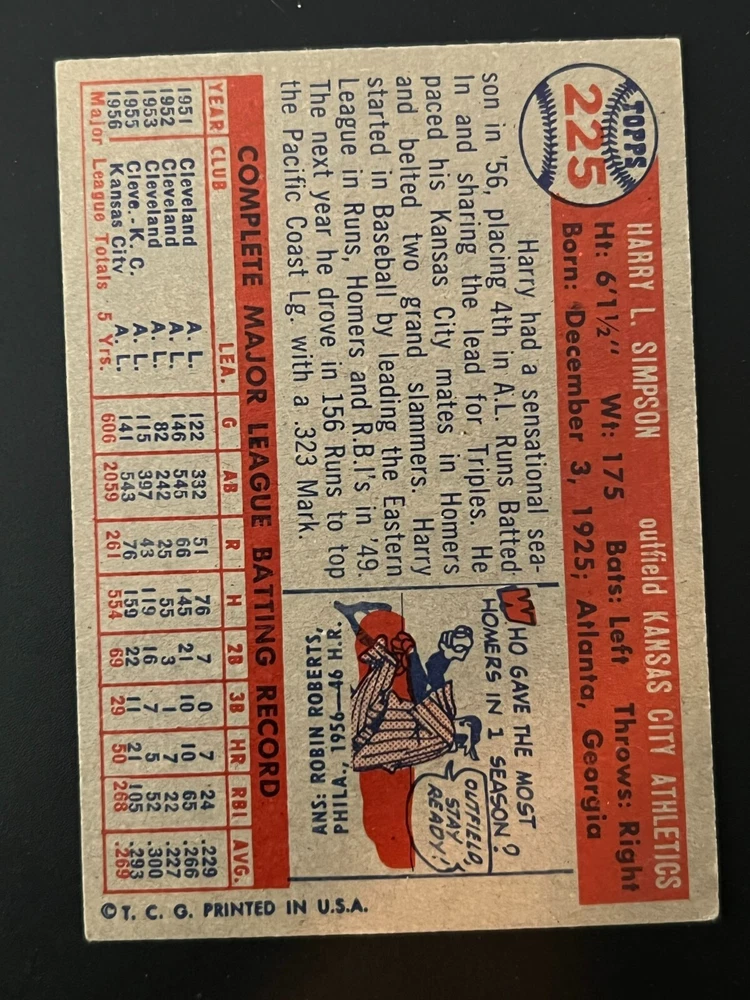 TOPPS
225
HARRY L. SIMPSON outfield KANSAS CITY ATHLETICS
Ht: 6'1½" Wt: 175 Bats: Left Throws: Right
Born: December 3, 1925; Atlanta, Georgia
Harry had a sensational sea-
son in '56, placing 4th in A.L. Runs Batted
In and sharing the lead for Triples. He
paced his Kansas City mates in Homers
and belted two grand slammers. Harry
started in Baseball by leading the Eastern
League in Runs, Homers and R.B.I's in '49.
The next year he drove in 156 Runs to top
the Pacific Coast Lg. with a .323 Mark.
WHO GAVE THE MOST
HOMERS IN 1 SEASON?
OUTFIELD,
STAY
READY!
ANS: ROBIN ROBERTS,
PHILA., 1956—46 H.R.
COMPLETE MAJOR LEAGUE BATTING RECORD
YEAR CLUB LEA. G AB R H 2B 3B HR RBI AVG.
1951 Cleveland A. L. 122 332 51 76 7 0 7 24 .229
1952 Cleveland A. L. 146 545 66 145 21 10 10 65 .266
1953 Cleveland A. L. 82 242 25 55 3 1 7 22 .227
1955 Cleve.- K. C. A. L. 115 397 43 119 16 7 5 52 .300
1956 Kansas City A. L. 141 543 76 159 22 11 21 105 .293
Major League Totals 5 Yrs. 606 2059 261 554 69 29 50 268 .269
©T. C. G. PRINTED IN U.S.A.